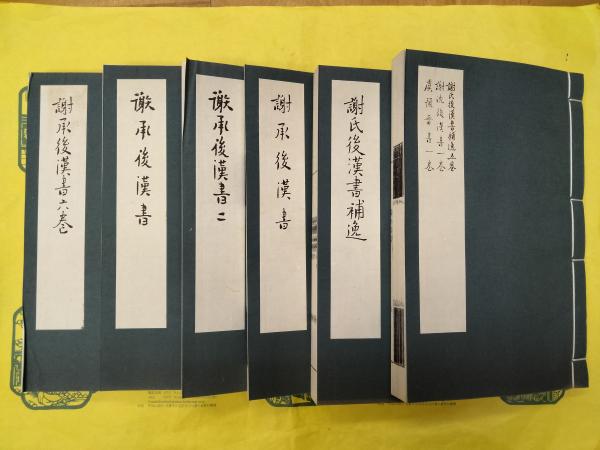 謝氏後漢書補逸五卷
謝沈後漢書一卷
虞預晉書一卷
謝氏後漢書補逸
謝承後漢書
謝承後漢書二
謝承後漢書
謝承後漢書六卷